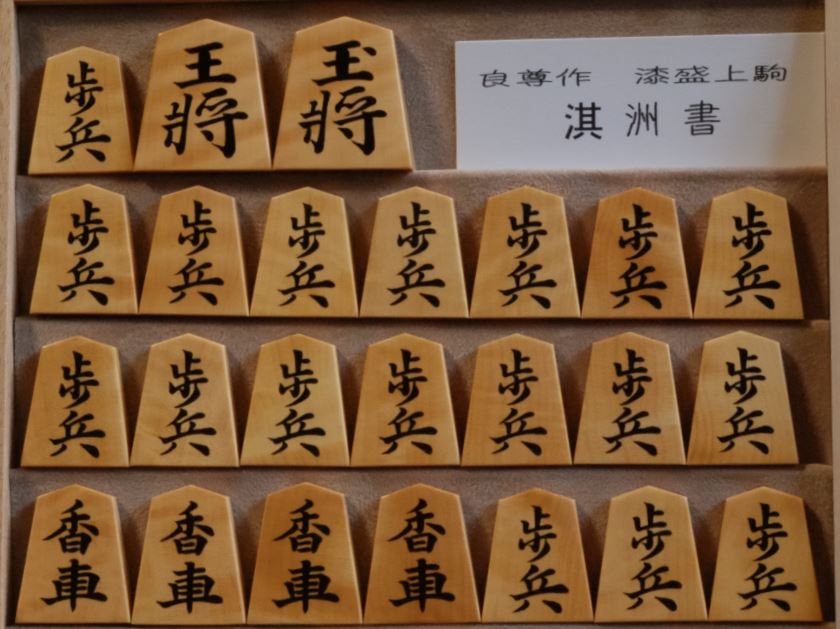 歩兵 王將 玉將
良尊作 漆盛上駒
淇洲書
歩兵 歩兵 歩兵 歩兵 歩兵 歩兵 歩兵
歩兵 歩兵 歩兵 歩兵 歩兵 歩兵 歩兵
香車 香車 香車 香車 歩兵 歩兵 歩兵